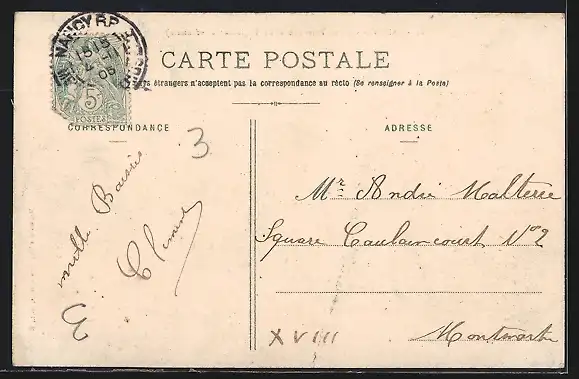 NANCY R.P.
15 15
4 - 11
05
5
POSTES
CARTE POSTALE
étrangers n'acceptent pas la correspondance au récto (Se renseigner à la Poste)
CORRESPONDANCE
ADRESSE
3
mille Baisers
Clément
Mr. André Malterre
Square Caulaincourt Nº 2
XVIII
Montmartre